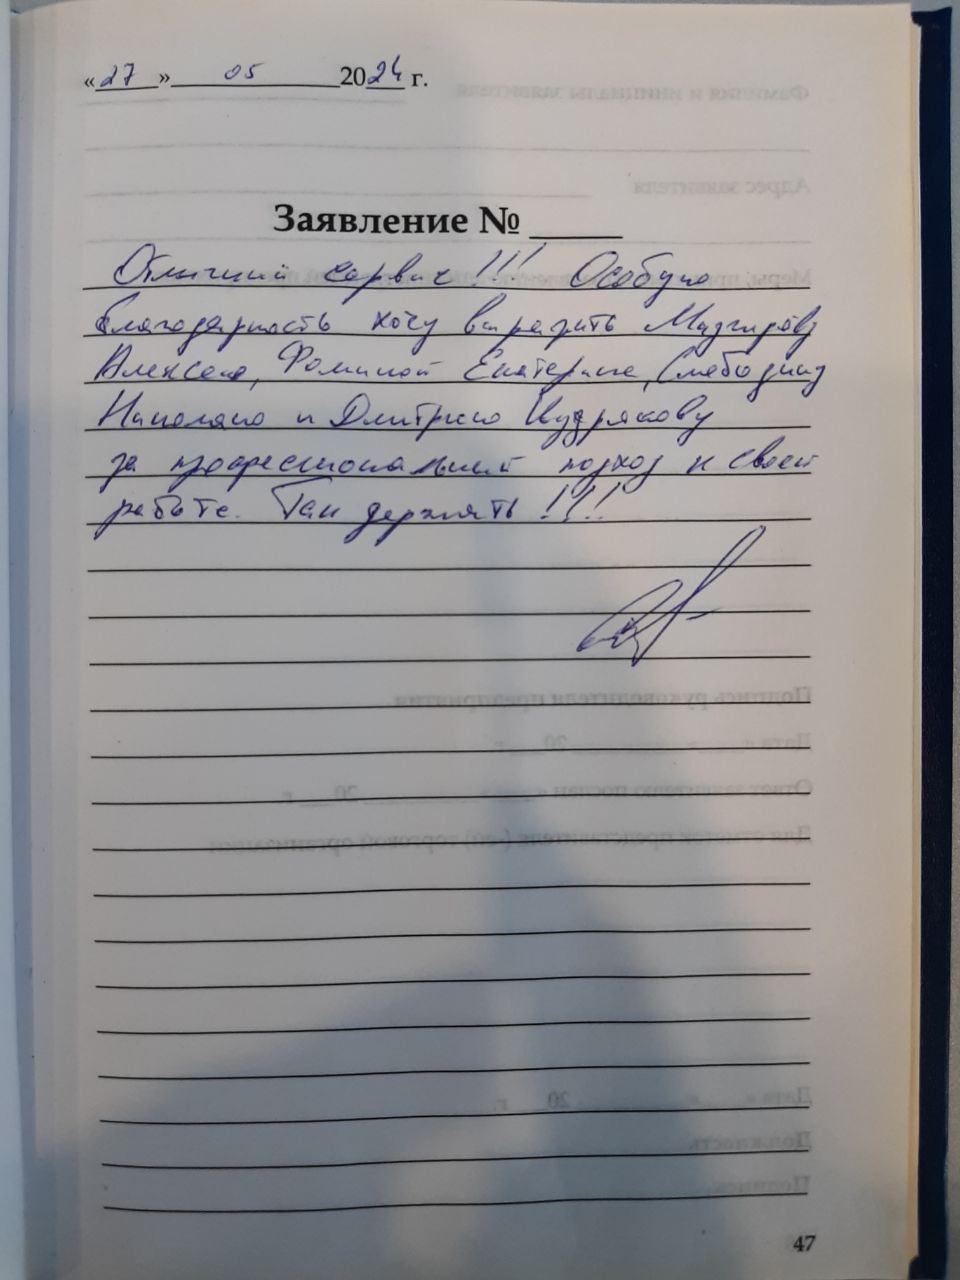 «27» 05 2024 г.
Заявление № ____
Отличный сервис!!! Особую
благодарность хочу выразить
Алексею, Фоминой Екатерине,
Николаю и Дмитрию Кудрякову
за профессиональный подход к своей
работе. Так держать!!!
47